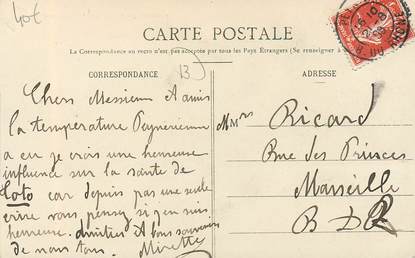 40€
CARTE POSTALE
La Correspondance au recto n'est pas acceptée par tous les Pays Étrangers (Se renseigner à
CORRESPONDANCE
13
ADRESSE
Chers Messieurs et amis
la température
a eu je crois une heureuse
influence sur la santé de
Toto car depuis pas une seule
crise vous pensez si j'en suis
heureuse. Amitiés et bons souvenirs
de nous tous. Mirette
MMrs Ricard
Rue des Princes
Marseille
B D R